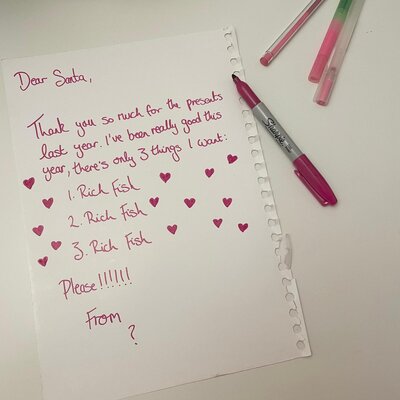 Dear Santa,
Thank you so much for the presents
last year. I've been really good this
year, there's only 3 things I want:
1. Rich Fish
2. Rich Fish
3. Rich Fish
Please!!!!!!
From
?
Sharpie